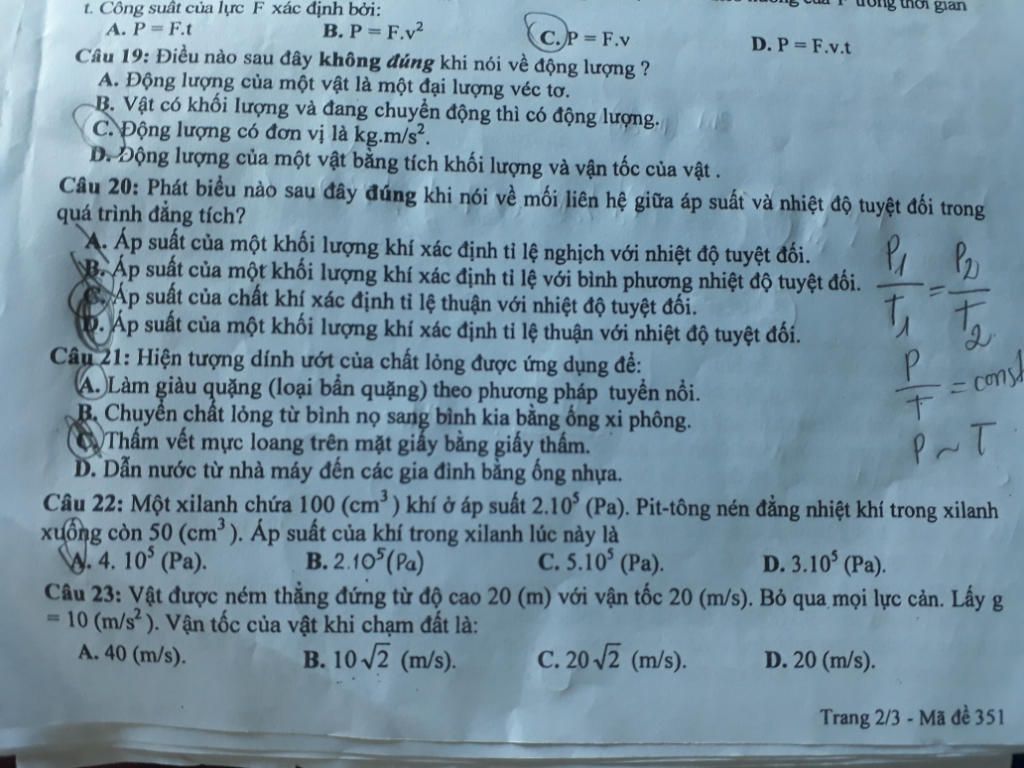 trong thời gian
t. Công suất của lực F xác định bởi:
A. P = F.t B. P = F.v² C. P = F.v D. P = F.v.t
Câu 19: Điều nào sau đây không đúng khi nói về động lượng ?
A. Động lượng của một vật là một đại lượng véc tơ.
B. Vật có khối lượng và đang chuyển động thì có động lượng.
C. Động lượng có đơn vị là kg.m/s².
D. Động lượng của một vật bằng tích khối lượng và vận tốc của vật .
Câu 20: Phát biểu nào sau đây đúng khi nói về mối liên hệ giữa áp suất và nhiệt độ tuyệt đối trong
quá trình đẳng tích?
A. Áp suất của một khối lượng khí xác định tỉ lệ nghịch với nhiệt độ tuyệt đối.
B. Áp suất của một khối lượng khí xác định tỉ lệ với bình phương nhiệt độ tuyệt đối.
C. Áp suất của chất khí xác định tỉ lệ thuận với nhiệt độ tuyệt đối.
D. Áp suất của một khối lượng khí xác định tỉ lệ thuận với nhiệt độ tuyệt đối.
P₁/T₁ = P₂/T₂
P/T = const
P ~ T
Câu 21: Hiện tượng dính ướt của chất lỏng được ứng dụng để:
A. Làm giàu quặng (loại bẩn quặng) theo phương pháp tuyển nổi.
B. Chuyển chất lỏng từ bình nọ sang bình kia bằng ống xi phông.
C. Thấm vết mực loang trên mặt giấy bằng giấy thấm.
D. Dẫn nước từ nhà máy đến các gia đình bằng ống nhựa.
Câu 22: Một xilanh chứa 100 (cm³) khí ở áp suất 2.10⁵ (Pa). Pit-tông nén đẳng nhiệt khí trong xilanh
xuống còn 50 (cm³). Áp suất của khí trong xilanh lúc này là
A. 4. 10⁵ (Pa). B. 2.10⁵(Pa) C. 5.10⁵ (Pa). D. 3.10⁵ (Pa).
Câu 23: Vật được ném thẳng đứng từ độ cao 20 (m) với vận tốc 20 (m/s). Bỏ qua mọi lực cản. Lấy g
= 10 (m/s²). Vận tốc của vật khi chạm đất là:
A. 40 (m/s). B. 10√2 (m/s). C. 20√2 (m/s). D. 20 (m/s).
Trang 2/3 - Mã đề 351